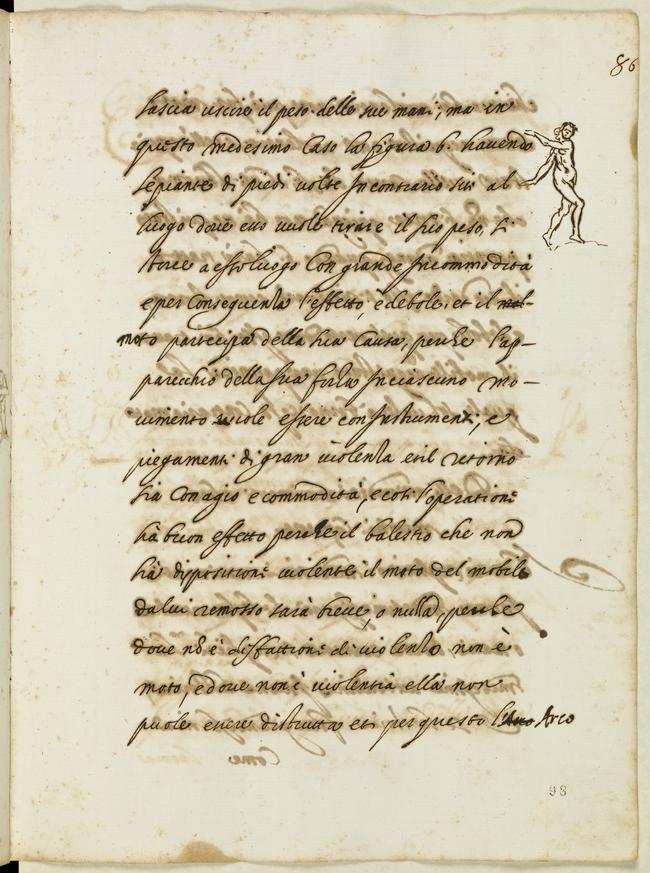 86
lascia uscire il peso delle sue mani; ma in
questo medesimo Caso la figura b. havendo
le piante di piedi volte in contrario sito al
luogo dove esso vuole tirare il suo peso, si
torce a esso luogo Con grande Incommodità
e per Conseguenza l'effetto è debole; et il
moto partecipa della sua Causa, perche l'ap-
parecchio della sua forza In ciascuno mo-
vimento vuole essere con Instrumenti, e
piegamenti di gran violenza et il retorno
sia Con agio e commodità, e così l'operatione
hà buon effetto perche il balestro che non
hà dispositione violente il moto del mobile
da lui remosso sarà breve, o nulla, perche
dove nō è disfattione di violenza non è
moto, e dove non è violentia ella non
puole essere distrutta et per questo l'Arco
Come
98